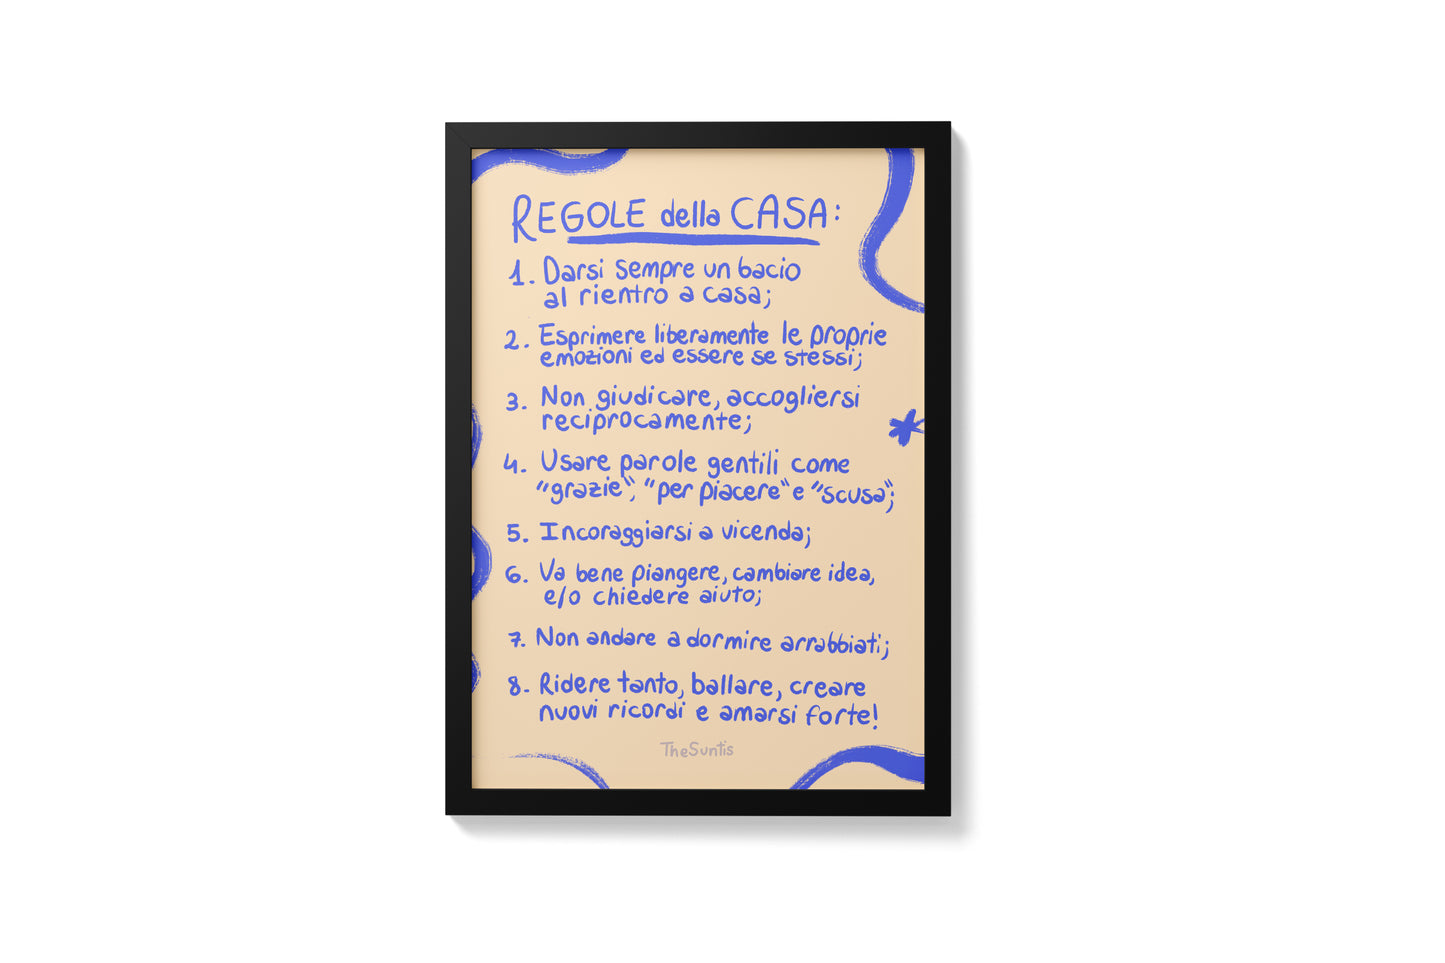 REGOLE della CASA:
1. Darsi sempre un bacio
al rientro a casa;
2. Esprimere liberamente le proprie
emozioni ed essere se stessi;
3. Non giudicare, accogliersi
reciprocamente;
4. Usare parole gentili come
"grazie", "per piacere" e "scusa";
5. Incoraggiarsi a vicenda;
6. Va bene piangere, cambiare idea,
e/o chiedere aiuto;
7. Non andare a dormire arrabbiati;
8. Ridere tanto, ballare, creare
nuovi ricordi e amarsi forte!
TheSuntis